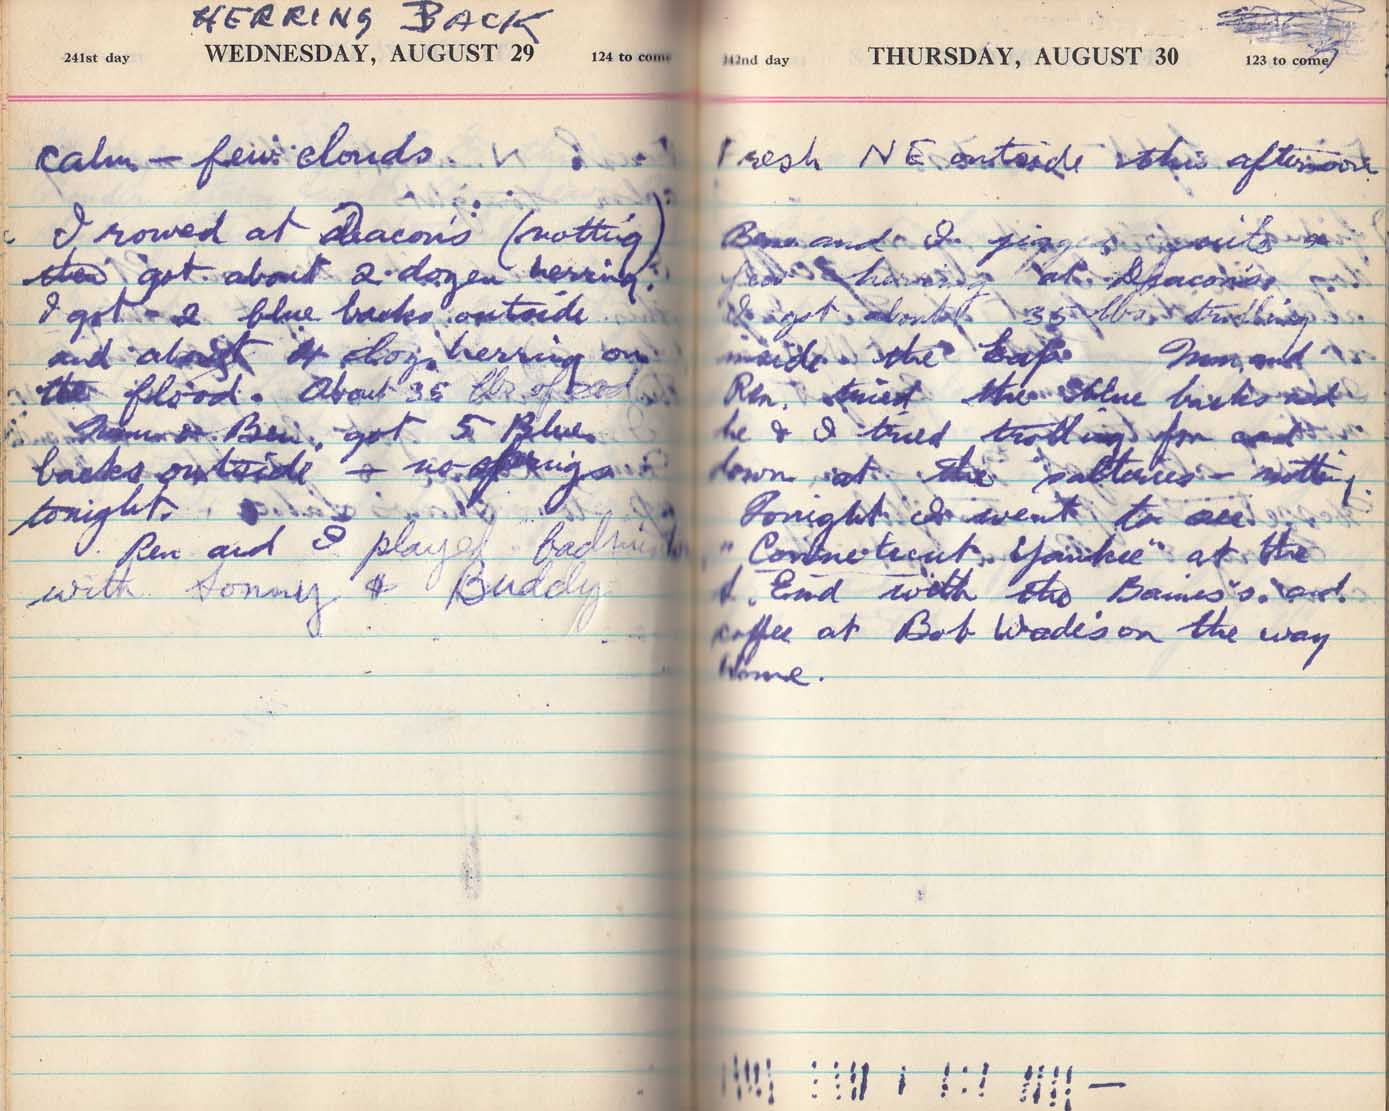 HERRING BACK
241st day WEDNESDAY, AUGUST 29 124 to come
calm - few clouds.
I rowed at Deacons (nothing)
then got about 2 dozen herring.
I got - 2 blue backs outside
and about 4 doz. herring on
the flood. About 35 lbs of cod
Mum & Ben, got 5 Blue
backs outside + no springs
tonight.
Pen and I played Badmin
with Sonny & Buddy
242nd day THURSDAY, AUGUST 30 123 to come
Fresh NE outside this afternoon
and I quite a
few herring at Deacons
I got about 35 lbs. trolling
inside the Gap. Mum and
Pen. tried the blue backs and
he & I tried trolling for cod
down at the salteries - nothing.
Tonight I went to see
"Connecticut Yankee" at the
End with the Baines's. and
coffee at Bob Wade's on the way
home.